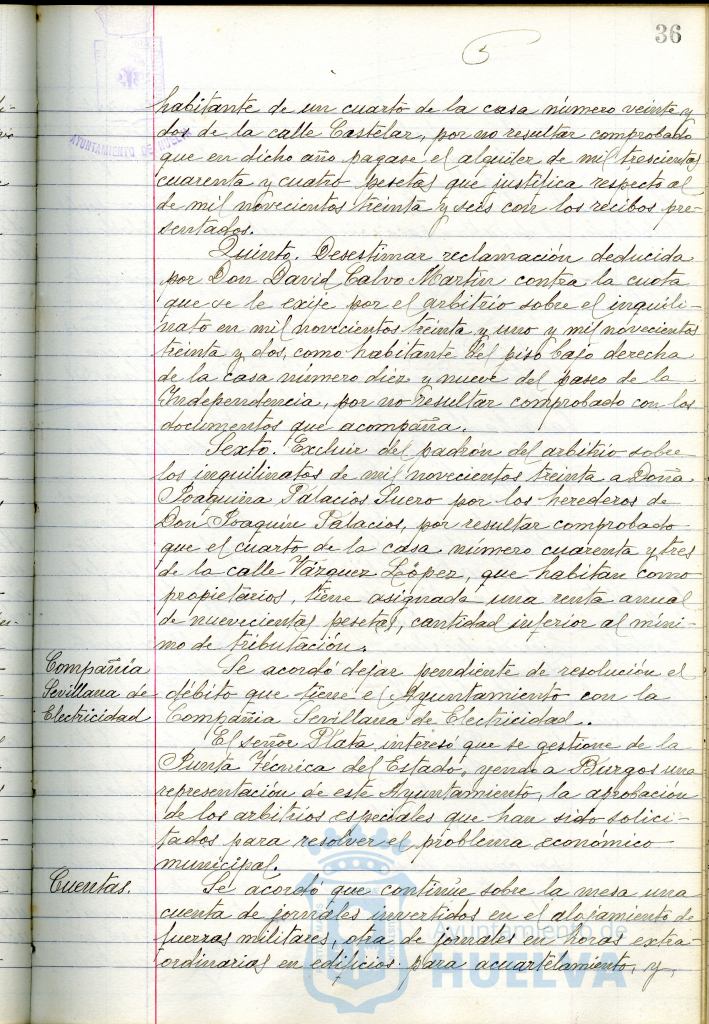 36
AYUNTAMIENTO DE HUELVA
habitante de un cuarto de la casa número veinte y
dos de la calle Castelar, por no resultar comprobado
que en dicho año pagase el alquiler de mil trescientas
cuarenta y cuatro pesetas que justifica respecto al
de mil novecientos treinta y seis con los recibos pre-
sentados.
Quinto. Desestimar reclamación deducida
por Don David Calvo Martin contra la cuota
que se le exije por el arbitrio sobre el inquili-
nato en mil novecientos treinta y uno y mil novecientos
treinta y dos, como habitante del piso bajo derecha
de la casa número diez y nueve del paseo de la
Independencia, por no resultar comprobado con los
documentos que acompaña.
Sexto. Excluir del padrón del arbitrio sobre
los inquilinatos de mil novecientos treinta a Doña
Joaquina Palacios Suero por los herederos de
Don Joaquin Palacios, por resultar comprobado
que el cuarto de la casa número cuarenta y tres
de la calle Vázquez López, que habitan como
propietarios, tiene asignada una renta anual
de nuevecientas pesetas, cantidad inferior al míni-
mo de tributación.
Compañía
Sevillana de
Electricidad
Se acordó dejar pendiente de resolución el
débito que tiene el Ayuntamiento con la
Compañia Sevillana de Electricidad.
El señor Plata interesó que se gestione de la
Junta Técnica del Estado, yendo a Burgos una
representación de este Ayuntamiento, la aprobación
de los arbitrios especiales que han sido solici-
tados para resolver el problema económico
municipal.
Cuentas.
Se acordó que continúe sobre la mesa una
cuenta de jornales invertidos en el alojamiento de
fuerzas militares, otra de jornales en horas extra-
ordinarias en edificios para acuartelamiento, y
Ayuntamiento de
HUELVA